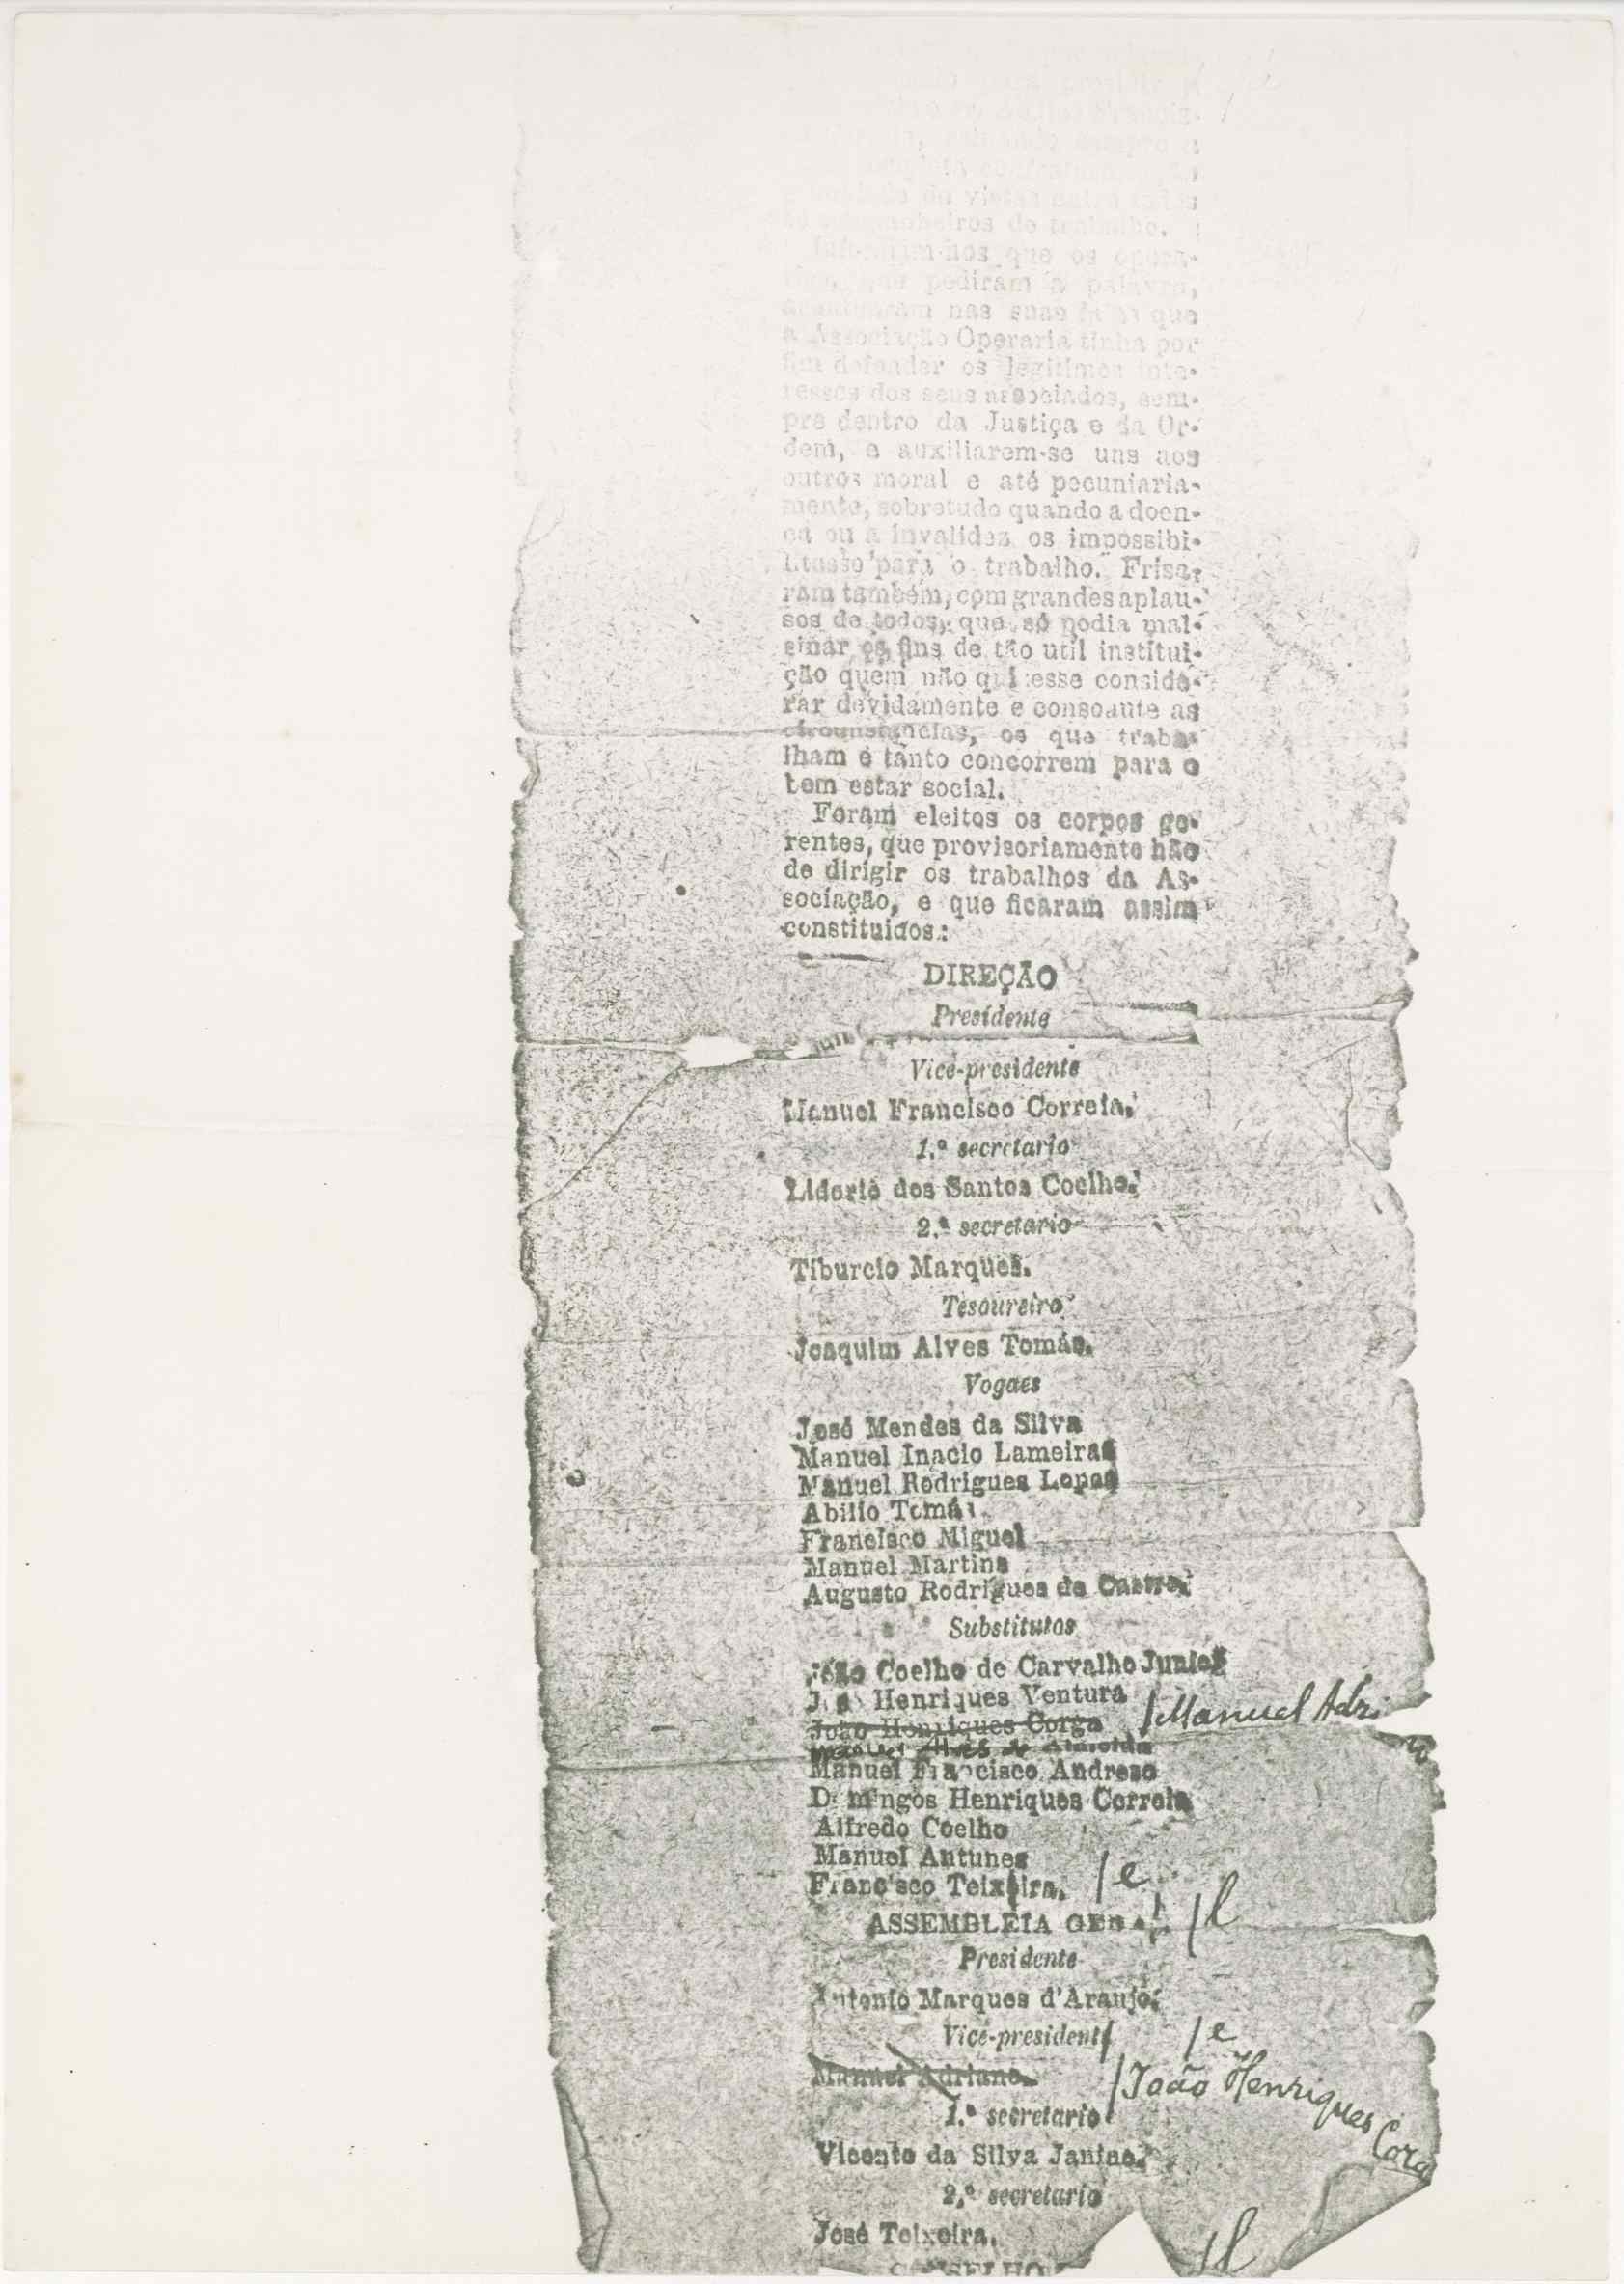 de vistas entre
do trabalho.
que os opera-
pediram a palavra,
nas suas que
a Associação Operaria tinha por
fim defender os legitimos inte-
resses dos seus associados, sem-
pre dentro da Justiça e da Or-
dem, e auxiliarem-se uns aos
outros moral e até pecuniaria-
mente, sobretudo quando a doen-
ça ou a invalidez os impossibi-
litasse para o trabalho. Frisa-
ram também, com grandes aplau-
sos de todos, que só podia mal-
sinar os fins de tão util institui-
ção quem não quizesse conside-
rar devidamente e consoante as
circunstancias, os que traba-
lham e tanto concorrem para o
bem estar social.
Foram eleitos os corpos ge-
rentes, que provisoriamente hão
de dirigir os trabalhos da As-
sociação, e que ficaram assim
constituidos:
DIREÇÃO
Presidente
Vice-presidente
Manuel Francisco Correia.
1.º secretario
Lidorio dos Santos Coelho.
2.º secretario
Tiburcio Marques.
Tesoureiro
Joaquim Alves Tomás.
Vogaes
José Mendes da Silva
Manuel Inacio Lameiras
Manuel Rodrigues Lopes
Abilio Tomás
Francisco Miguel
Manuel Martins
Augusto Rodrigues de Castro.
Substitutos
João Coelho de Carvalho Junior
Henriques Ventura
João Henriques Corga /Manuel Adri
Manuel Alves de Almeida
Manuel Francisco Andreso
Domingos Henriques Correia
Alfredo Coelho
Manuel Antunes
Francisco Teixeira. /e
ASSEMBLEIA GERAL /l
Presidente
Antonio Marques d'Araujo.
Vice-president /e
Manuel Adriano. /João Henriques Corga
1.º secretario
Vicente da Silva Janino.
2.º secretario
José Teixeira.
CONSELHO /l